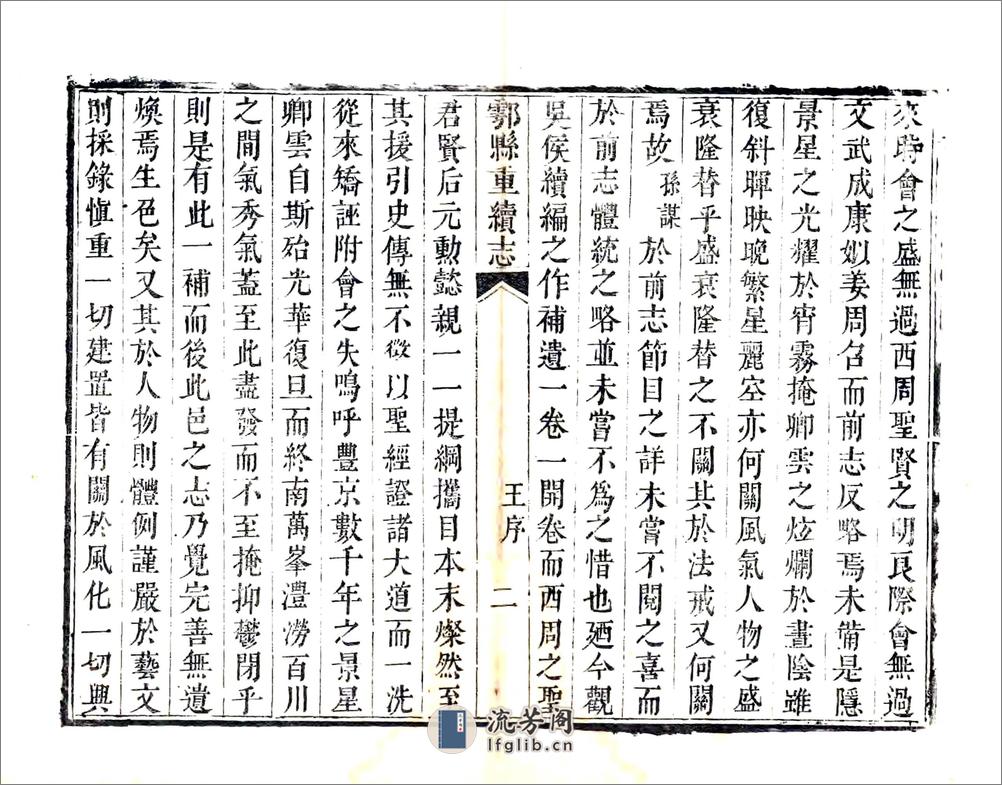 來時會之盛無過西周聖賢之明良際會無過
文武成康姒姜周召而前志反略焉未備是隱
景星之光耀於宵霧掩卿雲之炫斕於晝陰雖
復斜暉映晚繁星麗空亦何關風氣人物之盛
衰隆替乎盛衰隆替之不關其於法戒又何關
焉故孫謀於前志節目之詳未嘗不閱之喜而
於前志體統之略並未嘗不為之惜也廼今觀
吳侯續編之作補遺一卷一開卷而西周之聖
鄠縣重續志
王序
二
君賢后元勳懿親一一提綱攜目本末燦然至
其援引史傳無不徵以聖經證諸大道而一洗
從來矯誣附會之失鳴呼豐京數千年之景星
卿雲自斯殆光華復旦而終南萬峯澧澇百川
之間氣秀氣蓋至此盡發而不至掩抑鬱閉乎
則是有此一補而後此邑之志乃覺完善無遺
煥焉生色矣又其於人物則體例謹嚴於藝文
則採錄慎重一切建置皆有關於風化一切興
流芳阁
lfglib.cn